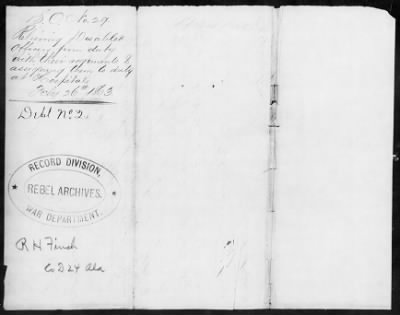 S.O. No. 29.
Relieving Disabled
Officers from duty
with their regiments &
assigning them to duty
at Hospitals
Feby 26th 1863
Debt No 2.
RECORD DIVISION.
REBEL ARCHIVES.
WAR DEPARTMENT.
R H Finch
Co D 24 Ala